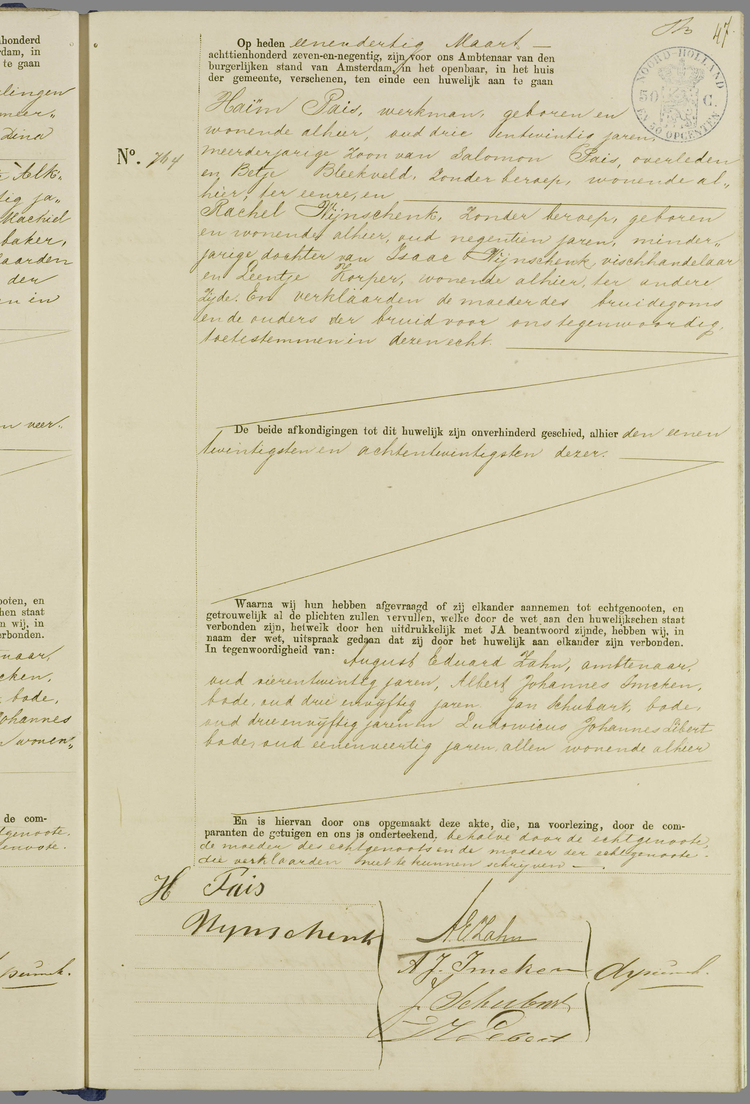 nhonderd
rdam, in
te gaan
elingen
Dina
Alk„
tig ja„
Machiel
baker,
aarden
der
en in
n veer„
ooten, en
hen staat
n wij, in
erbonden.
naar,
cken,
bode,
Johannes
wonen„
de com-
htgenoote.
enoote.
47
NOORD-HOLLAND
50 C.
EN 50 OPCENTEN
Op heden eenendertig Maart —
achttienhonderd zeven-en-negentig, zijn voor ons Ambtenaar van den
burgerlijken stand van Amsterdam, in het openbaar, in het huis
der gemeente, verschenen, ten einde een huwelijk aan te gaan
Haïm Pais, werkman, geboren en
wonende alhier, oud drie entwintig jaren,
No. 764
meerderjarige zoon van Salomon Pais, overleden
en Betje Bleekveld, zonder beroep, wonende al„
hier, ter eenre, en
Rachel Wijnschenk, zonder beroep, geboren
en wonende alhier, oud negentien jaren, minder„
jarige dochter van Isaac Wijnschenk, vischhandelaar
en Leentje Korper, wonende alhier, ter andere
zijde. En verklaarden de moeder des bruidegoms
en de ouders der bruid voor ons tegenwoordig,
toetestemmen in dezen echt.
De beide afkondigingen tot dit huwelijk zijn onverhinderd geschied, alhier den eenen
twintigsten en achtentwintigsten dezer.
Waarna wij hun hebben afgevraagd of zij elkander aannemen tot echtgenooten, en
getrouwelijk al de plichten zullen vervullen, welke door de wet aan den huwelijkschen staat
verbonden zijn, hetwelk door hen uitdrukkelijk met JA beantwoord zijnde, hebben wij, in
naam der wet, uitspraak gedaan dat zij door het huwelijk aan elkander zijn verbonden.
In tegenwoordigheid van:
August Eduard Zahn, ambtenaar,
oud vierentwintig jaren, Albert Johannes Imcken,
bode, oud drie envijftig jaren Jan Schubart, bode,
oud drieenvijftig jaren en Ludowicus Johannes Libert
bode, oud eenenveertig jaren, allen wonende alhier
En is hiervan door ons opgemaakt deze akte, die, na voorlezing, door de com-
paranten de getuigen en ons is onderteekend, behalve door de echtgenoote,
de moeder des echtgenoots en de moeder der echtgenoote.
die verklaarden niet te kunnen schrijven —.
H Pais
Wynschenk
A.E. Zahn
A J. Imcken
J. Schubart